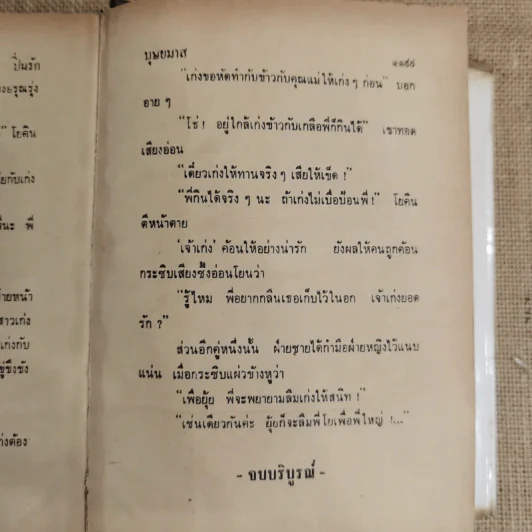 ปิ่นรัก
อรุณรุ่ง
" โยคิน
ยกับเก่ง
ะ พี่
ายหน้า
สาวเก่ง
เก่งกับ
งต้อง
บุษยมาส
๑๑๙๘
"เก่งขอหัดทำกับข้าวกับคุณแม่ให้เก่ง ๆ ก่อน" บอก
อาย ๆ
"โธ่ ! อยู่ใกล้เก่งข้าวกับเกลือพี่ก็กินได้" เขาทอด
เสียงอ่อน
"เดี๋ยวเก่งให้ทานจริง ๆ เสียให้เข็ด !"
"พี่กินได้จริง ๆ นะ ถ้าเก่งไม่เบื่อป้อนพี่ !" โยคิน
ตีหน้าตาย
'เจ้าเก่ง' ค้อนให้อย่างน่ารัก ยังผลให้คนถูกค้อน
กระซิบเสียงซึ้งอ่อนโยนว่า
"รู้ไหม พี่อยากกลืนเธอเก็บไว้ในอก เจ้าเก่งยอด
รัก ?"
ส่วนอีกคู่หนึ่งนั้น ฝ่ายชายได้กำมือฝ่ายหญิงไว้แนบ
แน่น เมื่อกระซิบแผ่วข้างหูว่า
"เพื่อยุ้ย พี่จะพยายามลืมเก่งให้สนิท !"
"เช่นเดียวกันค่ะ ยุ้ยก็จะลืมพี่โยเพื่อพี่ใหญ่ !..."
- จบบริบูรณ์ -